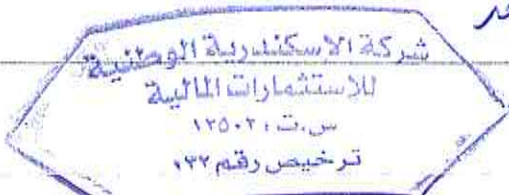 شركة الاسكندرية الوطنية
للاستثمارات المالية
س.ت: ١٣٥٠٢
ترخيص رقم ٠٣٢